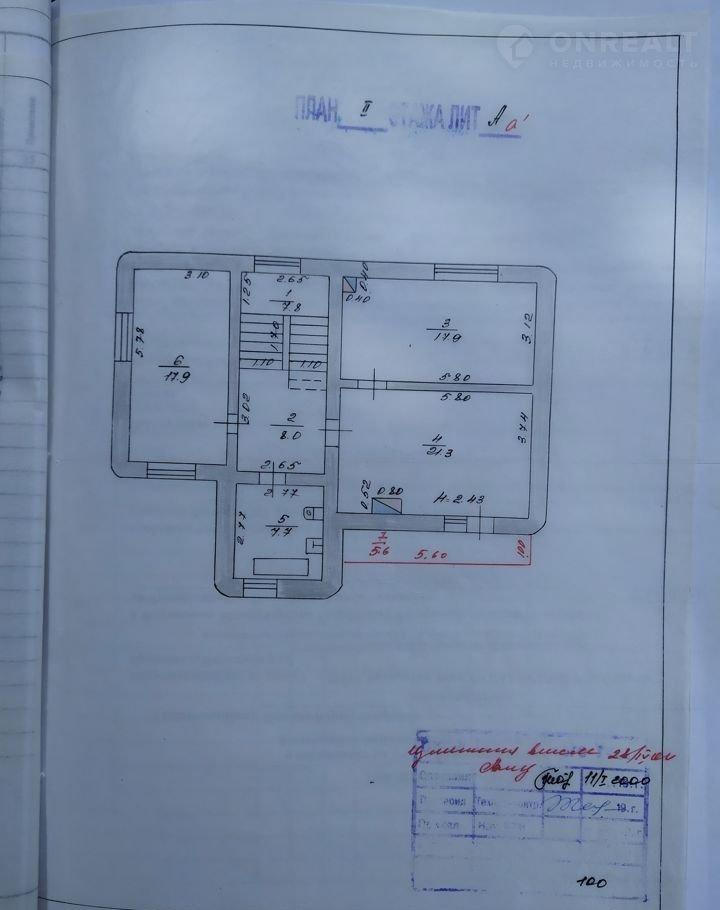 ONREALT
НЕДВИЖИМОСТЬ
ПЛАН II ЭТАЖА ЛИТ А а'
3.10
2.65
1.25
1
7.8
0.40
0.40
5.78
1.70
1.10
1.10
3
17.9
3.12
6
17.9
5.80
5.80
3.02
2
8.0
4
21.3
3.74
2.65
2.77
0.52
0.80
H=2.43
2.77
5
7.7
7
5.6
5.60
1.00
11/I 2000
19 г.
100